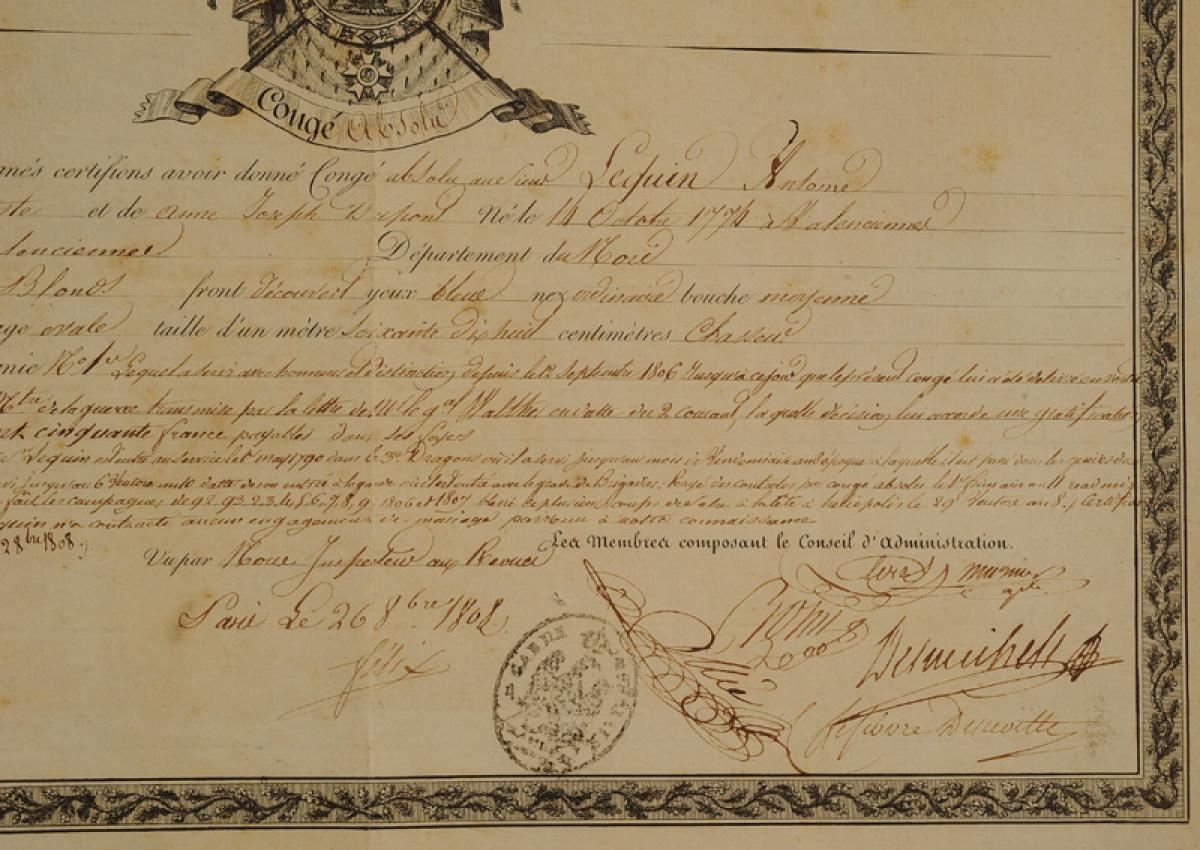 Congé Absolu
nés certifions avoir donné Congé absolu au Sieur Lequin Antoine
et de Anne Joseph Dupont Né le 14 Octobre 1774 à Valenciennes
lenciennes Département du Nord
Blonds front découvert yeux bleue nez ordinaire bouche moyenne
ge ovale taille d'un mètre soixante dix huit centimètres Chasseur
nie No. 1er Lequel a servi avec honneur et Distinction depuis le 12 Septembre 1806 Jusqu'à ce jour que le présent congé lui a été délivré en
de la guerre transmise par la lettre de Mr le gal Walther en datte du 2 courant, la quelle décision lui accorde une gratification
cinquante france payables dans ses foyers
Lequin est entré au service le 1er may 1790 dans le 3e Dragons où il a servi jusqu'au mois de Vendemiaire an époque à laquelle il est passé dans les guides
jusqu'au datte de son entrée à la garde avec le grade de Brigadier, Rayé des controles par congé absolu le 1er frimaire an 11
fait les campagnes de 92. 93. 2. 3. 4. 5. 6. 7. 8. 9. 1806 et 1807 blessé de plusieurs coups de Sabre à la tête à héliopolis le 29 Ventose an 8.
quin n'a contracté aucun engagement de mariage parvenu à notre connaissance
28bre 1808.)
Les Membres composant le Conseil d'Administration.
Vu par Nous Inspecteur aux Revues
Paris Le 26 8bre 1808
Félix
Lefebvre Desnoëttes